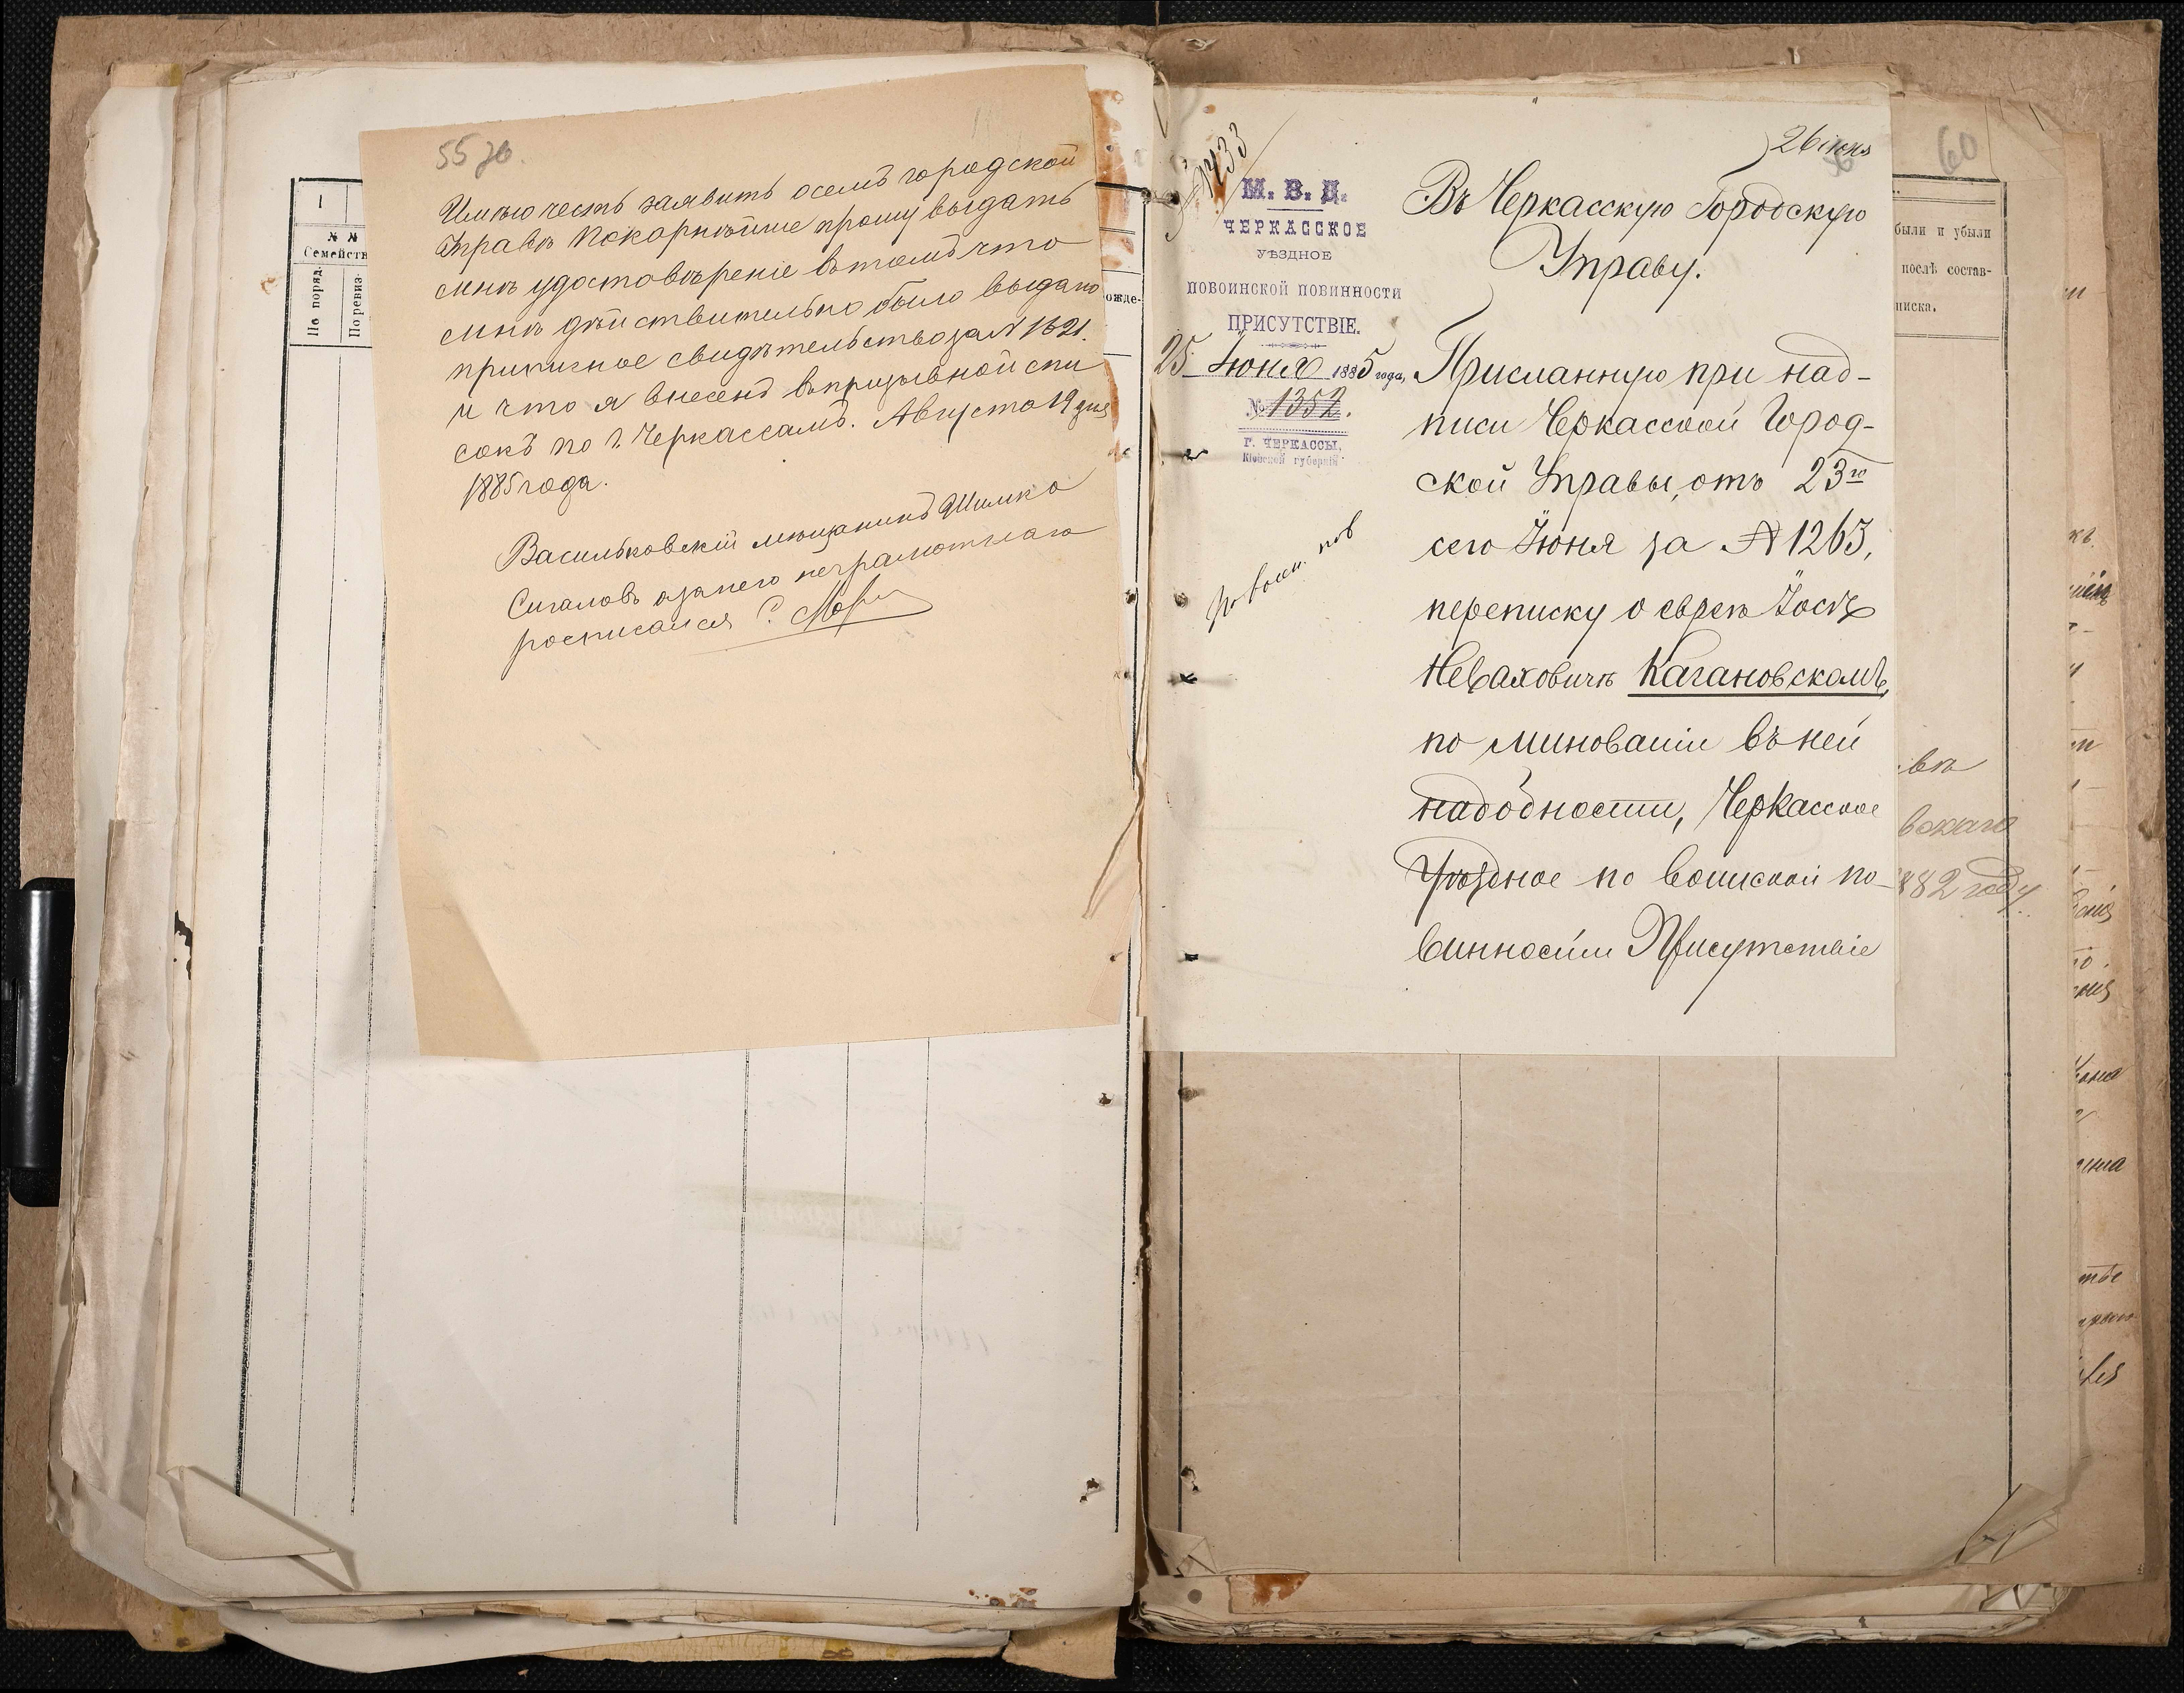 55 об.
Имѣю честь заявить о семъ городской
Управѣ Покорнѣйше прошу выдать
мнѣ удостовѣреніе въ томъ что
мнѣ дѣйствительно было выдано
приписное свидѣтельство за № 1621.
и что я внесенъ въ призывной спи
сокъ по г. Черкассамъ. Августа 19 дня
1885 года.
Васильковскій мѣщанинъ Шимко
Сигаловъ а за него неграмотнаго
росписался С.
1
№ №
Семейств
По поряд.
По ревиз.
ожде-
1433
26 июня
60
М. В. Д.
ЧЕРКАССКОЕ
УѢЗДНОЕ
ПО ВОИНСКОЙ ПОВИННОСТИ
ПРИСУТСТВІЕ.
25 Июня 1885 года,
№ 1352.
Г. ЧЕРКАССЫ,
Кіевской губерніи
По воин. пов
Въ Черкасскую Городскую
Управу.
Присланную при над-
писи Черкасской Город-
ской Управы, отъ 23го
сего Июня за № 1263,
переписку о евреѣ Йосѣ
Неваховичѣ Кагановскомъ,
по минованіи въ ней
надобности, Черкасское
Уѣздное по воинской по-
винности Присутствіе
были и убыли
послѣ состав-
писка.
вскаго
882 году.